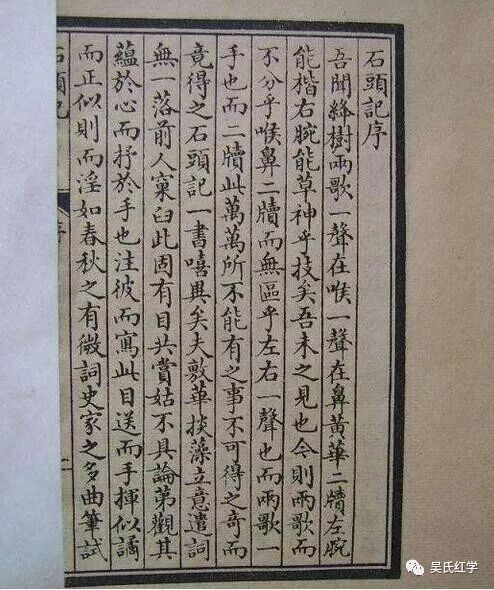 石頭記序
吾聞絳樹兩歌一聲在喉一聲在鼻黃華二牘左腕
能楷右腕能草神乎技矣吾未之見也今則兩歌而
不分乎喉鼻二牘而無區乎左右一聲也而兩歌一
手也而二牘此萬萬所不能有之事不可得之奇而
竟得之石頭記一書嘻異矣夫敷華掞藻立意遣詞
無一落前人窠臼此固有目共賞姑不具論第觀其
蘊於心而抒於手也注彼而寫此目送而手揮似譎
而正似則而淫如春秋之有微詞史家之多曲筆試
石頭記
吴氏红学